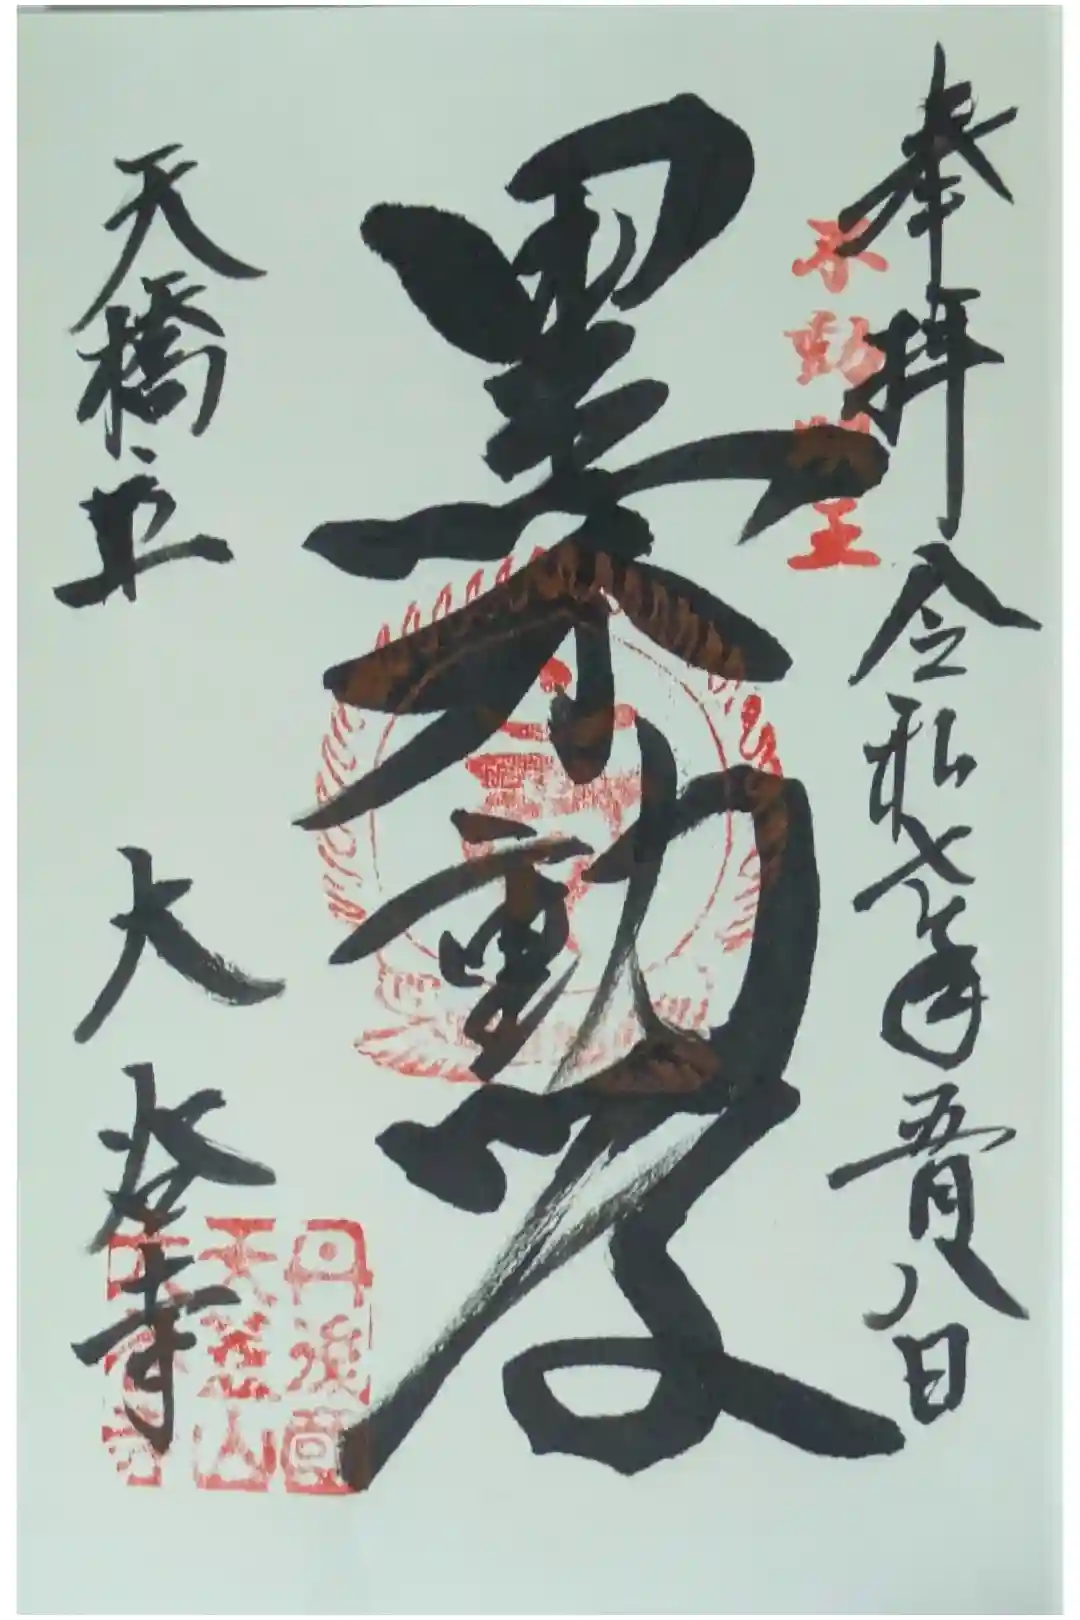 奉拝 令和七年五月八日
不動明王
黒不動尊
天橋立 大谷寺
丹後国
天蓋山
大谷寺